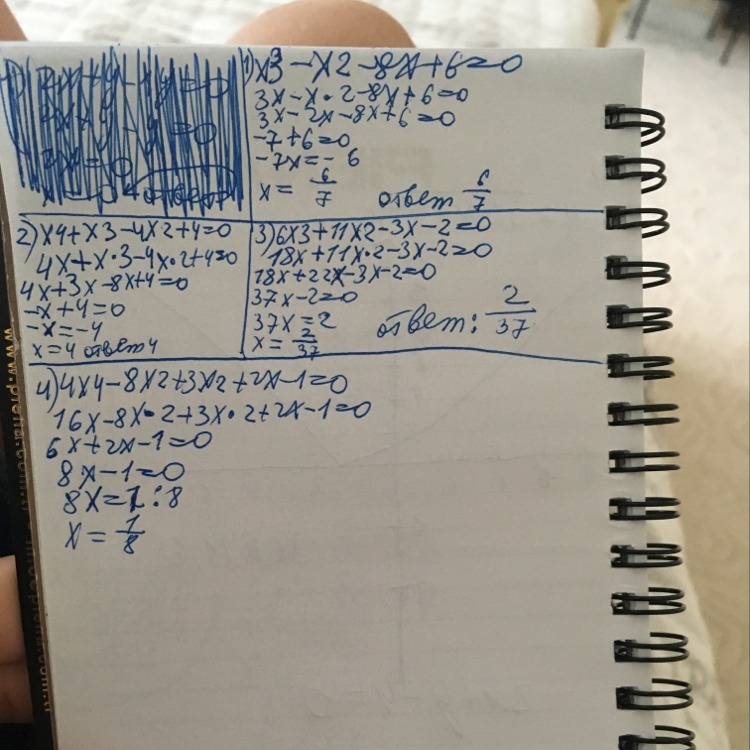 1) x3 - x2 - 8x + 6 = 0
3x - x·2 - 8x + 6 = 0
3x - 2x - 8x + 6 = 0
-7 + 6 = 0
-7x = - 6
x = 6/7 ответ 6/7
2) x4 + x3 - 4x2 + 4 = 0
4x + x·3 - 4x·2 + 4 = 0
4x + 3x - 8x + 4 = 0
-x + 4 = 0
-x = -4
x = 4 ответ 4
3) 6x3 + 11x2 - 3x - 2 = 0
18x + 11x·2 - 3x - 2 = 0
18x + 22x - 3x - 2 = 0
37x - 2 = 0
37x = 2
x = 2/37 ответ: 2/37
4) 4x4 - 8x2 + 3x2 + 2x - 1 = 0
16x - 8x·2 + 3x·2 + 2x - 1 = 0
6x + 2x - 1 = 0
8x - 1 = 0
8x = 1 : 8
x = 1/8